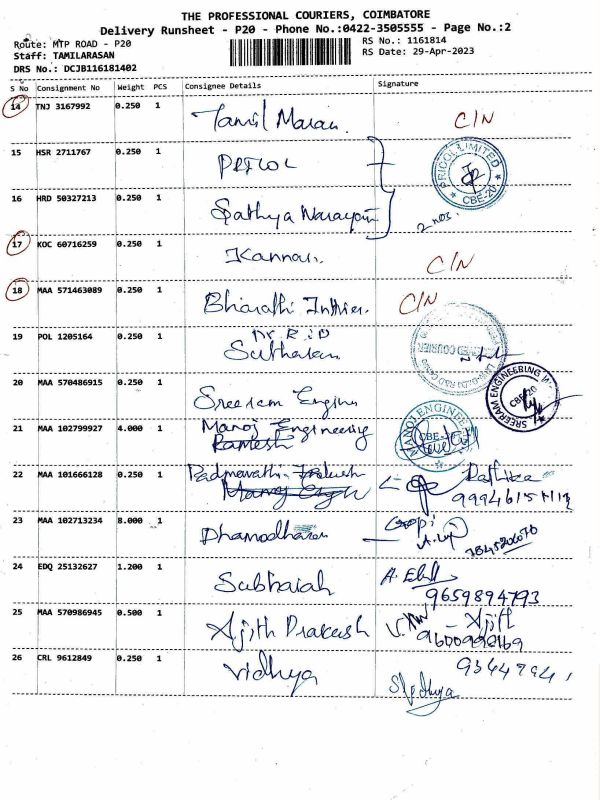 THE PROFESSIONAL COURIERS, COIMBATORE
Delivery Runsheet - P20 - Phone No.:0422-3505555 - Page No.:2
Route: MTP ROAD - P20
RS No.: 1161814
Staff: TAMILARASAN
RS Date: 29-Apr-2023
DRS No.: DCJB116181402
S No Consignment No Weight PCS Consignee Details Signature
14 TNJ 3167992 0.250 1 Tamil Maran C/N
15 HSR 2711767 0.250 1 PRICOL
PRICOL LIMITED CBE-20
16 HRD 50327213 0.250 1 Sathya Narayan 2 nos.
17 KOC 60716259 0.250 1 Kannan C/N
18 MAA 571463089 0.250 1 Bharathi C/N
19 POL 1205164 0.250 1
20 MAA 570486915 0.250 1 Sreeram Engine
SREERAM ENGINEERING CBE-20
21 MAA 102799927 4.000 1 Manoj Engineering
Ramesh
MANOJ ENGINEE CBE-20
22 MAA 101666128 0.250 1 Padmavathi
23 MAA 102713234 8.000 1 Dhamodharan Gopi
24 EDQ 25132627 1.200 1 Subhaiah
9659894793
25 MAA 570986945 0.500 1 Ajith Prakash - Ajith
26 CRL 9612849 0.250 1 Vidhya